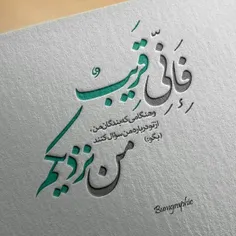 فَإِنِّي قَرِيبٌ
وهنگامی که بندگان من،
از تو درباره من سؤال کنند
(بگو:)
من نزدیکم
Bumgraphic